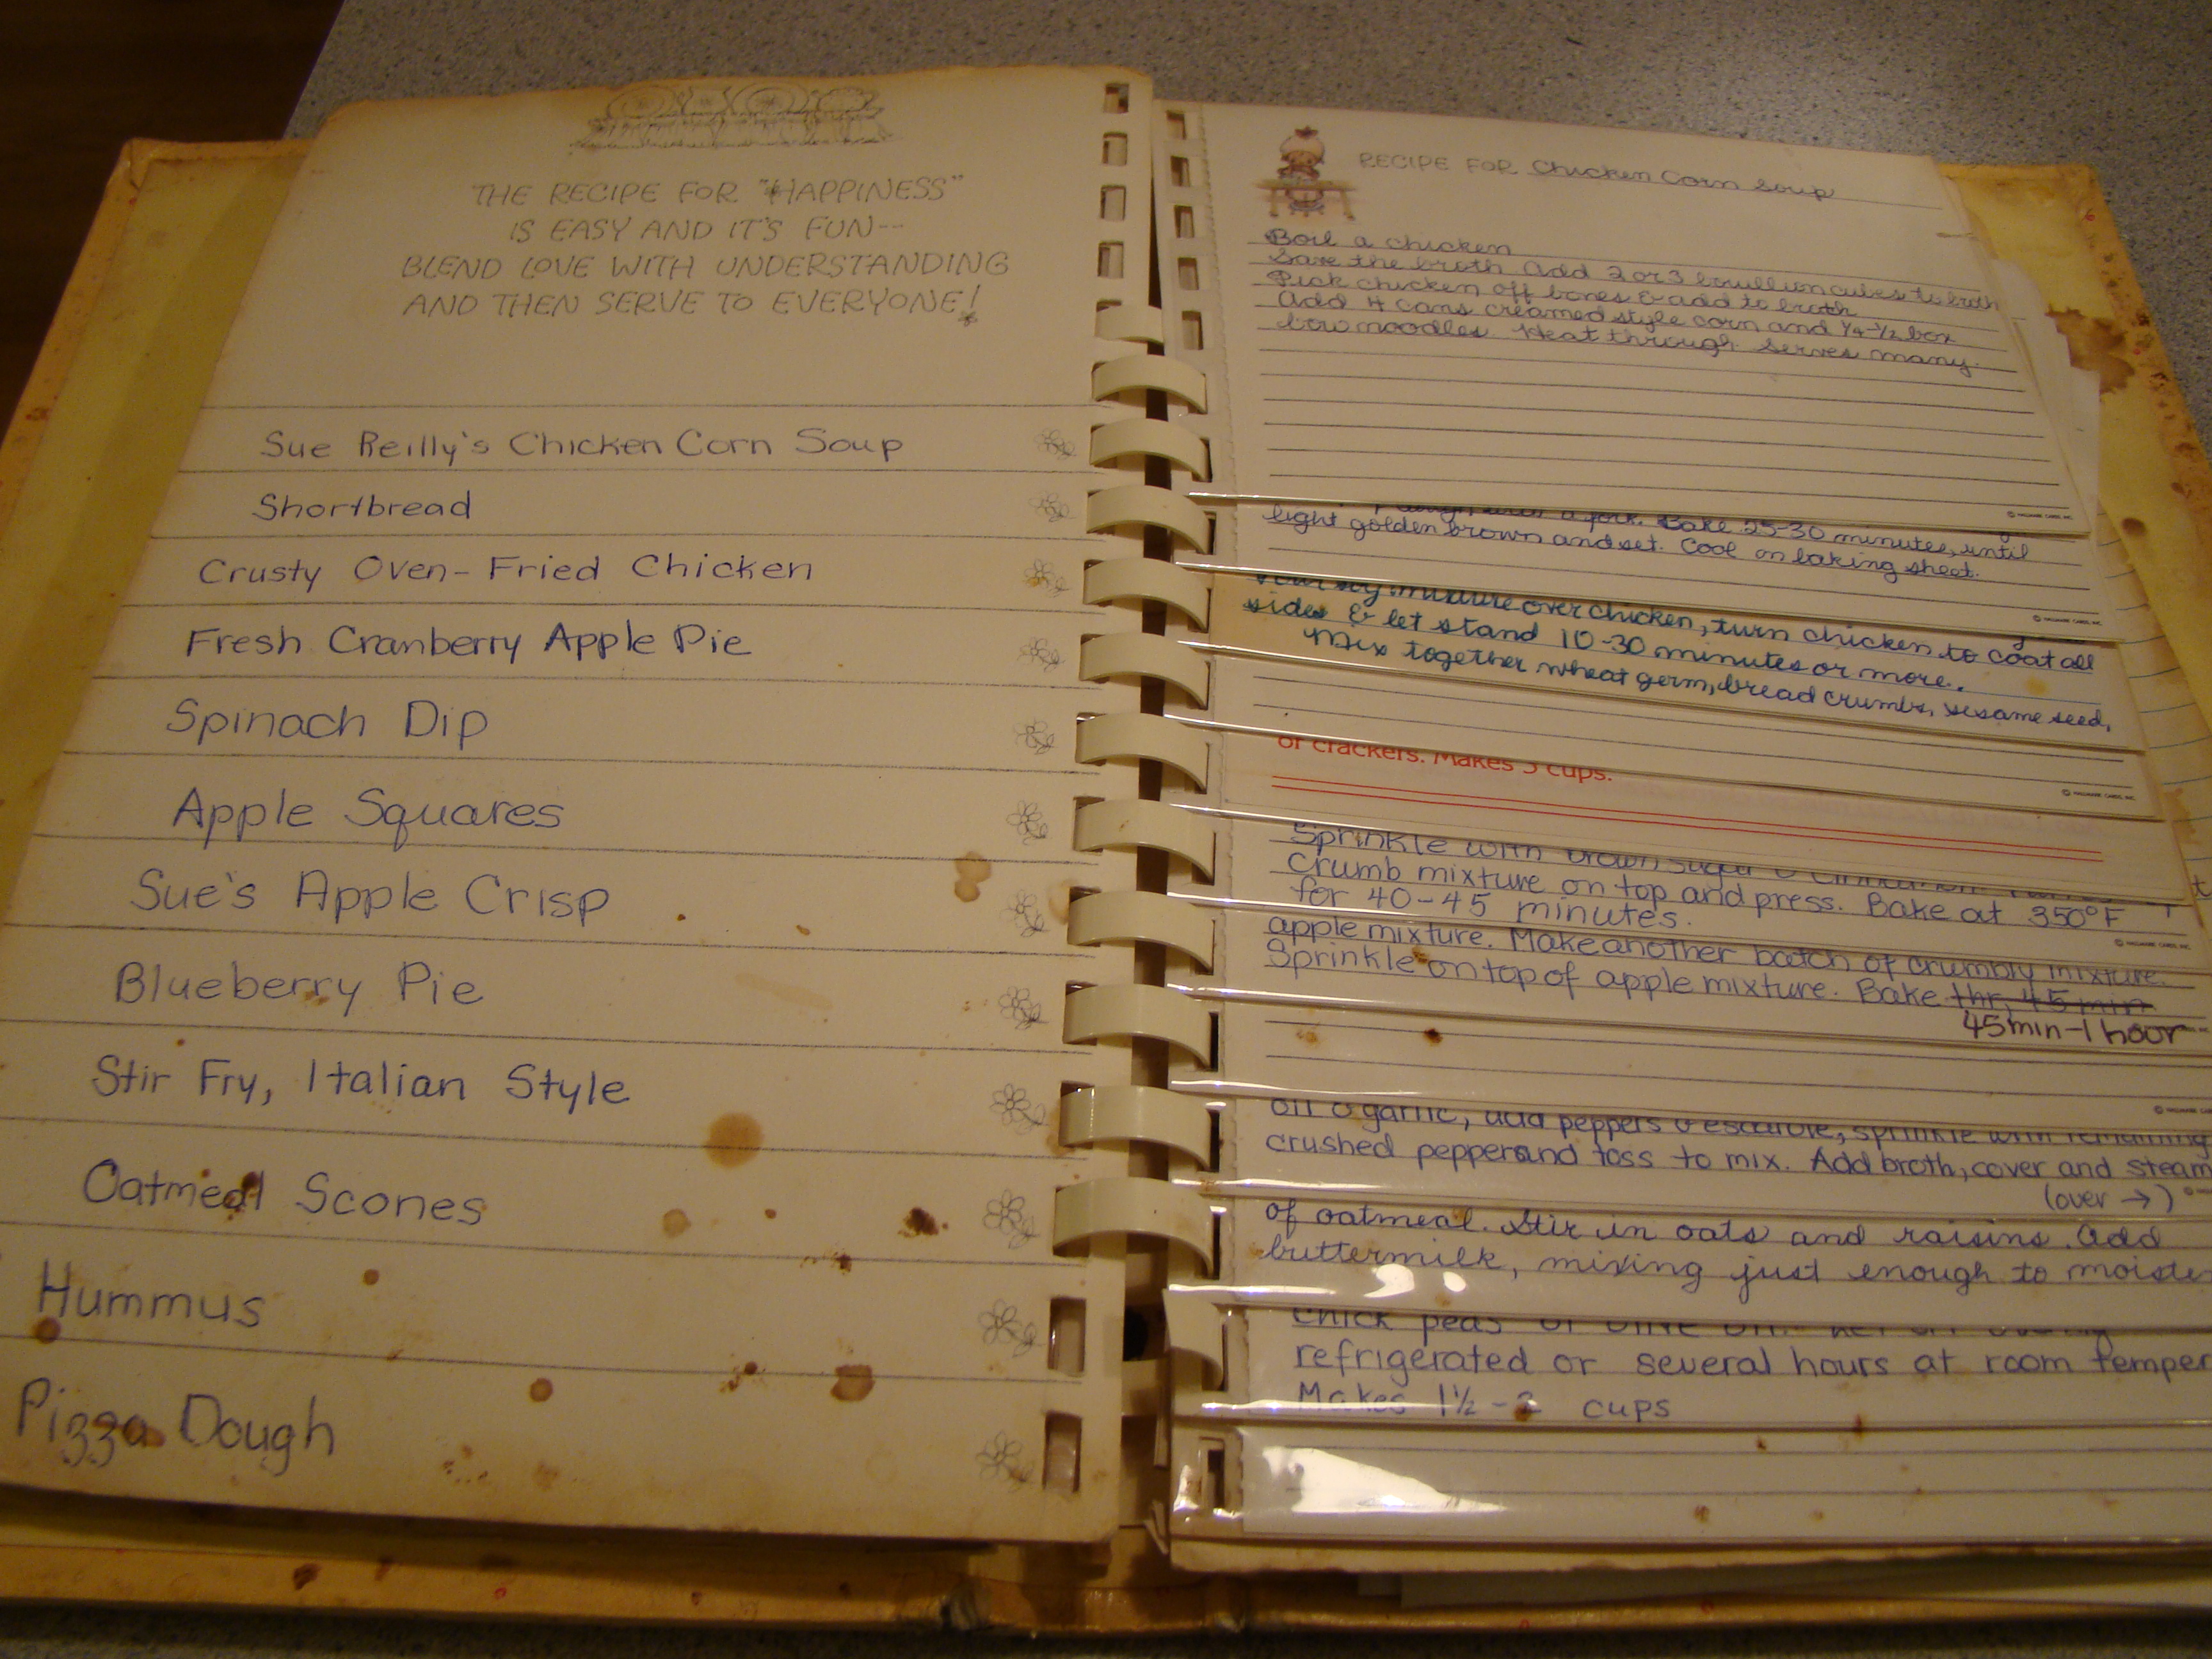 THE RECIPE FOR "HAPPINESS"
IS EASY AND IT'S FUN--
BLEND LOVE WITH UNDERSTANDING
AND THEN SERVE TO EVERYONE!
Sue Reilly's Chicken Corn Soup
Shortbread
Crusty Oven-Fried Chicken
Fresh Cranberry Apple Pie
Spinach Dip
Apple Squares
Sue's Apple Crisp
Blueberry Pie
Stir Fry, Italian Style
Oatmeal Scones
Hummus
Pizza Dough
RECIPE FOR Chicken Corn Soup
Boil a chicken
Save the broth. Add 2 or 3 bouillon cubes to broth
Pick chicken off bones & add to broth
Add 4 cans creamed style corn and 1/4-1/2 box
bow noodles. Heat through. Serves many.
© HALLMARK CARDS, INC.
a fork. Bake 25-30 minutes, until
light golden brown and set. Cool on baking sheet.
© HALLMARK CARDS, INC.
Pour soy mixture over chicken, turn chicken to coat all
sides & let stand 10-30 minutes or more.
Mix together wheat germ, bread crumbs, sesame seed,
© HALLMARK CARDS, INC.
of crackers. Makes 3 cups.
Sprinkle with brown sugar & cinnamon.
Crumb mixture on top and press. Bake at 350°F
for 40-45 minutes.
© HALLMARK CARDS, INC.
apple mixture. Make another batch of crumbly mixture.
Sprinkle on top of apple mixture. Bake 1hr, 45 min
45min-1 hour
© HALLMARK CARDS
oil & garlic, add peppers & escarole, sprinkle with remaining
crushed pepper and toss to mix. Add broth, cover and steam
(over →)
of oatmeal. Stir in oats and raisins. Add
buttermilk, mixing just enough to moiste
chick peas or olive oil.
refrigerated or several hours at room temper
Makes 1½-2 cups